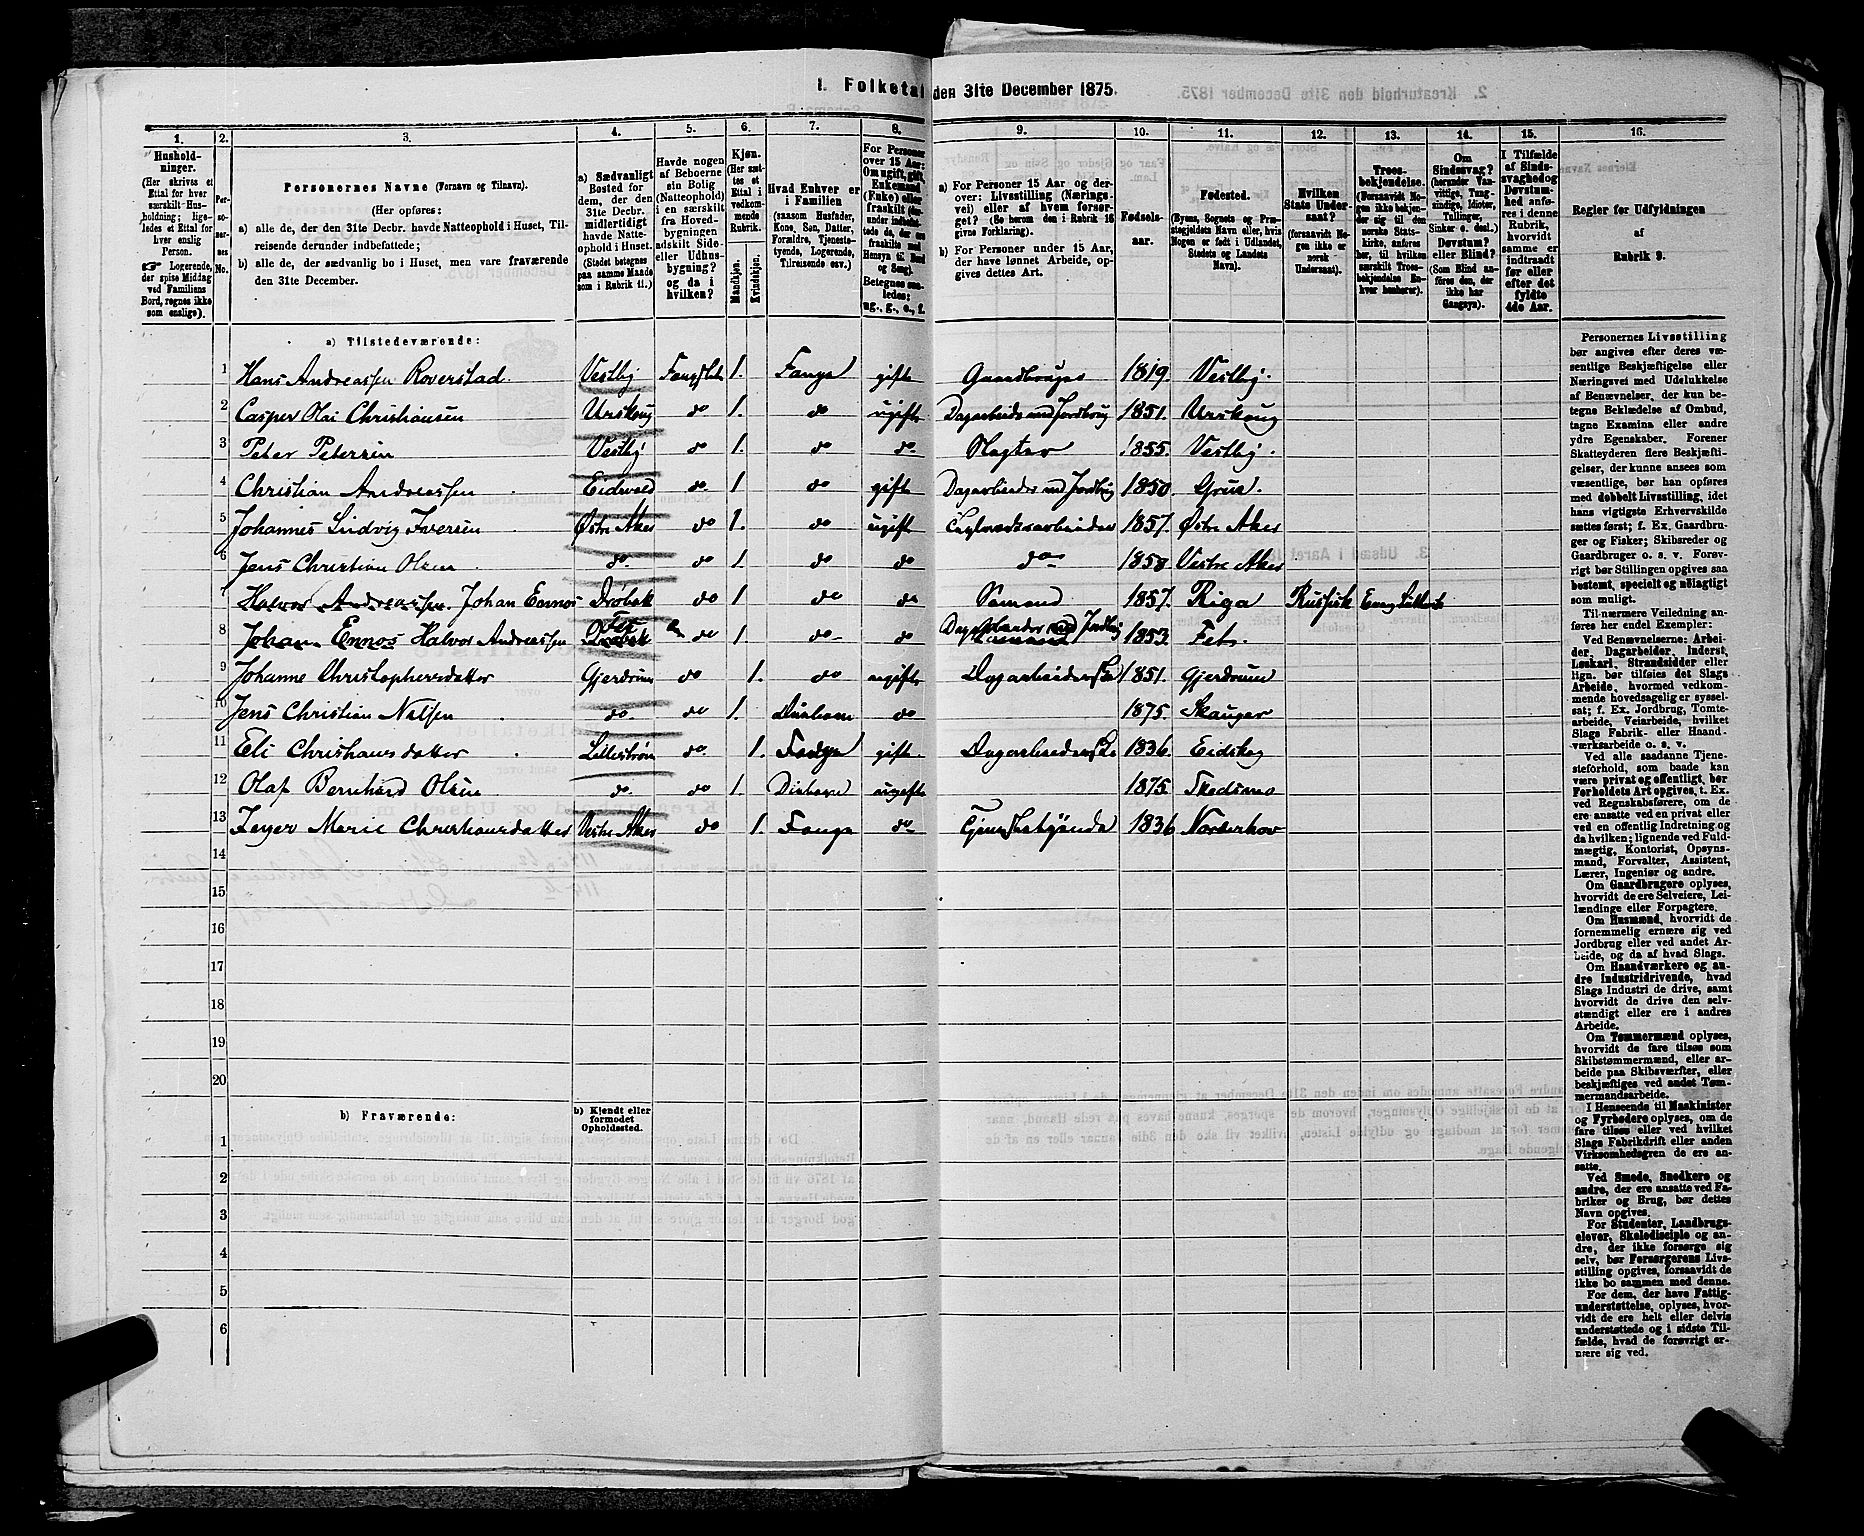 1. Folketal den 31te December 1875.
1. 2. 3. 4. 5. 6. 7. 8. 9. 10. 11. 12. 13. 14. 15. 16.
Hushold-
ninger.
(Her skrives et
Ettal for hver
særskilt Hus-
holdning; lige-
ledes et Ettal for
hver enslig
Person.
☞ Logerende,
der spise Middag
ved Familiens
Bord, regnes ikke
som enslige).
Per-
so-
ner-
nes
No.
Personernes Navne (Fornavn og Tilnavn).
(Her opføres:
a) alle de, der den 31te Decbr. havde Natteophold i Huset, Til-
reisende derunder indbefattede;
b) alle de, der sædvanlig bo i Huset, men vare fraværende
den 31te December.
a) Sædvanligt
Bosted for
dem, der den
31te Decbr.
midlertidigt
havde Natte-
ophold i Huset.
(Stedet betegnes
paa samme Maade
som i Rubrik 11.)
Havde nogen
af Beboerne
sin Bolig
(Natteophold)
i en særskilt
fra Hoved-
bygningen
adskilt Side-
eller Udhus-
bygning?
og da i
hvilken?
Kjøn.
(Her sæt-
tes et
Ettal i
vedkom-
mende
Rubrik.
Mandkjøn.
Kvindekjøn.
Hvad Enhver er
i Familien
(saasom Husfader,
Kone, Søn, Datter,
Forældre, Tjeneste-
tyende, Logerende,
Tilreisende osv.)
For Personer
over 15 Aar:
Om ugift, gift,
Enkemand
(Enke) eller
fraskilt
Betegnes saa-
ledes:
ug., g., e., f.
a) For Personer 15 Aar og der-
over: Livsstilling (Nærings-
vei) eller af hvem forsør-
get? (Se herom den i Rubrik 16
givne Forklaring).
b) For Personer under 15 Aar,
der have lønnet Arbeide, op-
gives dettes Art.
Fødsels-
aar.
Fødested.
(Byens, Sognets og Præ-
stegjeldets Navn eller, hvis
Nogen er født i Udlandet,
Stedets og Landets
Navn).
Hvilken
Stats Under-
saat?
(forsaavidt No-
gen ikke er
norsk
Undersaat).
Troes-
bekjendelse.
(Forsaavidt No-
gen ikke bekjen-
der sig til den
norske Stats-
kirke, anføres
her, til hvilken
særskilt Troes-
bekjendelse En-
hver henhører).
Om
Sindssvag?
(herunder Van-
vittige, Idioter,
Tullinger,
Sinker o. desl.)
Døvstum?
eller Blind?
(Som Blind an-
føres den, der
ikke har
Gangsyn).
I Tilfælde
af Sinds-
svaghed og
Døvstum-
hed anføres
i denne
Rubrik,
hvorvidt
samme er
indtraadt
før eller
efter det
fyldte
4de Aar.
Regler for Udfyldningen
af
Rubrik 9.
a) Tilstedeværende:
1 Hans Andreassen Roverstad. Vestby 1. Fange gift Gaardbruger 1819. Vestby.
2 Casper Olai Christiansen Urskoug do 1. do ugift Dagarbeide ved Jordbrug 1851. Urskoug
3 Peter Petersen Vestby do 1. do do. Slagter 1855. Vestby.
4 Christian Andreassen Eidsvold do. 1 do gift Dagarbeider ved Jordbrug 1850 Grue.
5 Johannes Ludvig Iversen Østre Aker do 1. do ugift Teglværksarbeider 1857. Østre Aker
6 Jens Christian Olsen do. do 1 do do do 1858 Vestre Aker
7 Halvor Andreassen. Johan Ennos Drøbak do 1 do do Sømand 1857. Riga Russisk
8 Johan Ennos Halvor Andreassen Drøbak do 1 do do Dagarbeider ved Jordbrug Sømand 1853. Fet.
9 Johanne Christophersdatter Gjerdrum do 1. do ugift 1851. Gjerdrum
10 Jens Christian Nilsen do. do 1. Diebarn do 1875. Skauger
11 Eli Christiansdatter Lillestrøm do. 1. Fange gift 1836 Eidskog
12 Olaf Bernhard Olsen do. do 1. Diebarn ugift 1875. Skedsmo
13 Marie Christiansdatter Vestre Aker do 1. Fange do 1836 Norderhov
14
15
16
17
18
19
20
b) Fraværende:
b) Kjendt eller
formodet
Opholdssted.
1
2
3
4
5
6
Personernes Livsstilling
bør angives efter deres væ-
sentlige Beskjæftigelse eller
Næringsvei med Udelukkelse
af Benævnelser, der kun be-
tegne Beklædelse af Ombud,
tagne Examina eller andre
ydre Egenskaber. Forener
Skatteyderen flere Beskjæfti-
gelser, der kunne ansees som
væsentlige, bør han opføres
med dobbelt Livsstilling, idet
hans vigtigste Erhvervskilde
sættes først; f. Ex. Gaardbru-
ger og Fisker; Skibsreder og
Gaardbruger o. s. v. Forøv-
rigt bør Stillingen opgives saa
bestemt, specielt og nøiagtigt
som muligt.
Til nærmere Veiledning an-
føres her endel Exempler:
Ved Benævnelserne: Arbei-
der, Dagarbeider, Inderst,
Løskarl, Strandsidder eller
lign. bør tilføies det Slags
Arbeide, hvormed vedkom-
mende hovedsagelig er syssel-
sat; f. Ex. Jordbrug, Tomte-
arbeide, Veiarbeide, hvilket
Slags Fabrik- eller Haand-
værksarbeide o. s. v.
Ved alle saadanne Tjene-
steforhold, som baade kan
være privat og offentligt, bør
Forholdets Art opgives, t. Ex.
ved Regnskabsførere, om de
ere ansatte ved en privat eller
ved en offentlig Indretning og
da hvilken; lignende ved Fuld-
mægtig, Kontorist, Opsyns-
mand, Forvalter, Assistent,
Lærer, Ingeniør og andre.
Om Gaardbrugere oplyses,
hvorvidt de ere Selveiere, Lei-
lændinge eller Forpagtere.
Om Husmænd, hvorvidt de
fornemmelig ernære sig ved
Jordbrug eller ved andet Ar-
beide, og da af hvad Slags.
Om Haandværkere og an-
dre Industridrivende, hvad
Slags Industri de drive, samt
hvorvidt de drive den selv-
stændigt eller ere i andres
Arbeide.
Om Tømmermænd oplyses,
hvorvidt de fare tilsøs som
Skibstømmermænd, eller ar-
beide paa Skibsværfter, eller
beskjæftiges ved andet Tøm-
mermandsarbeide.
I Henseende til Maskinister
og Fyrbødere oplyses, om de
fare tilsøs eller ved hvilket
Slags Fabrikdrift eller anden
Virksomhedsgren de ere an-
satte.
Ved Smede, Snedkere og
andre, der ere ansatte ved Fa-
briker og Brug, bør dettes
Navn opgives.
For Studenter, Landbrugs-
elever, Skoledisciple og an-
dre, der ikke forsørge sig
selv, bør Forsørgerens Livs-
stilling opgives, forsaavidt de
ikke bo sammen med denne.
For dem, der have Fattig-
understøttelse, oplyses, hvor-
vidt de ere helt eller delvis
understøttede og i sidste Til-
fælde, hvad de forøvrigt er-
nære sig ved.